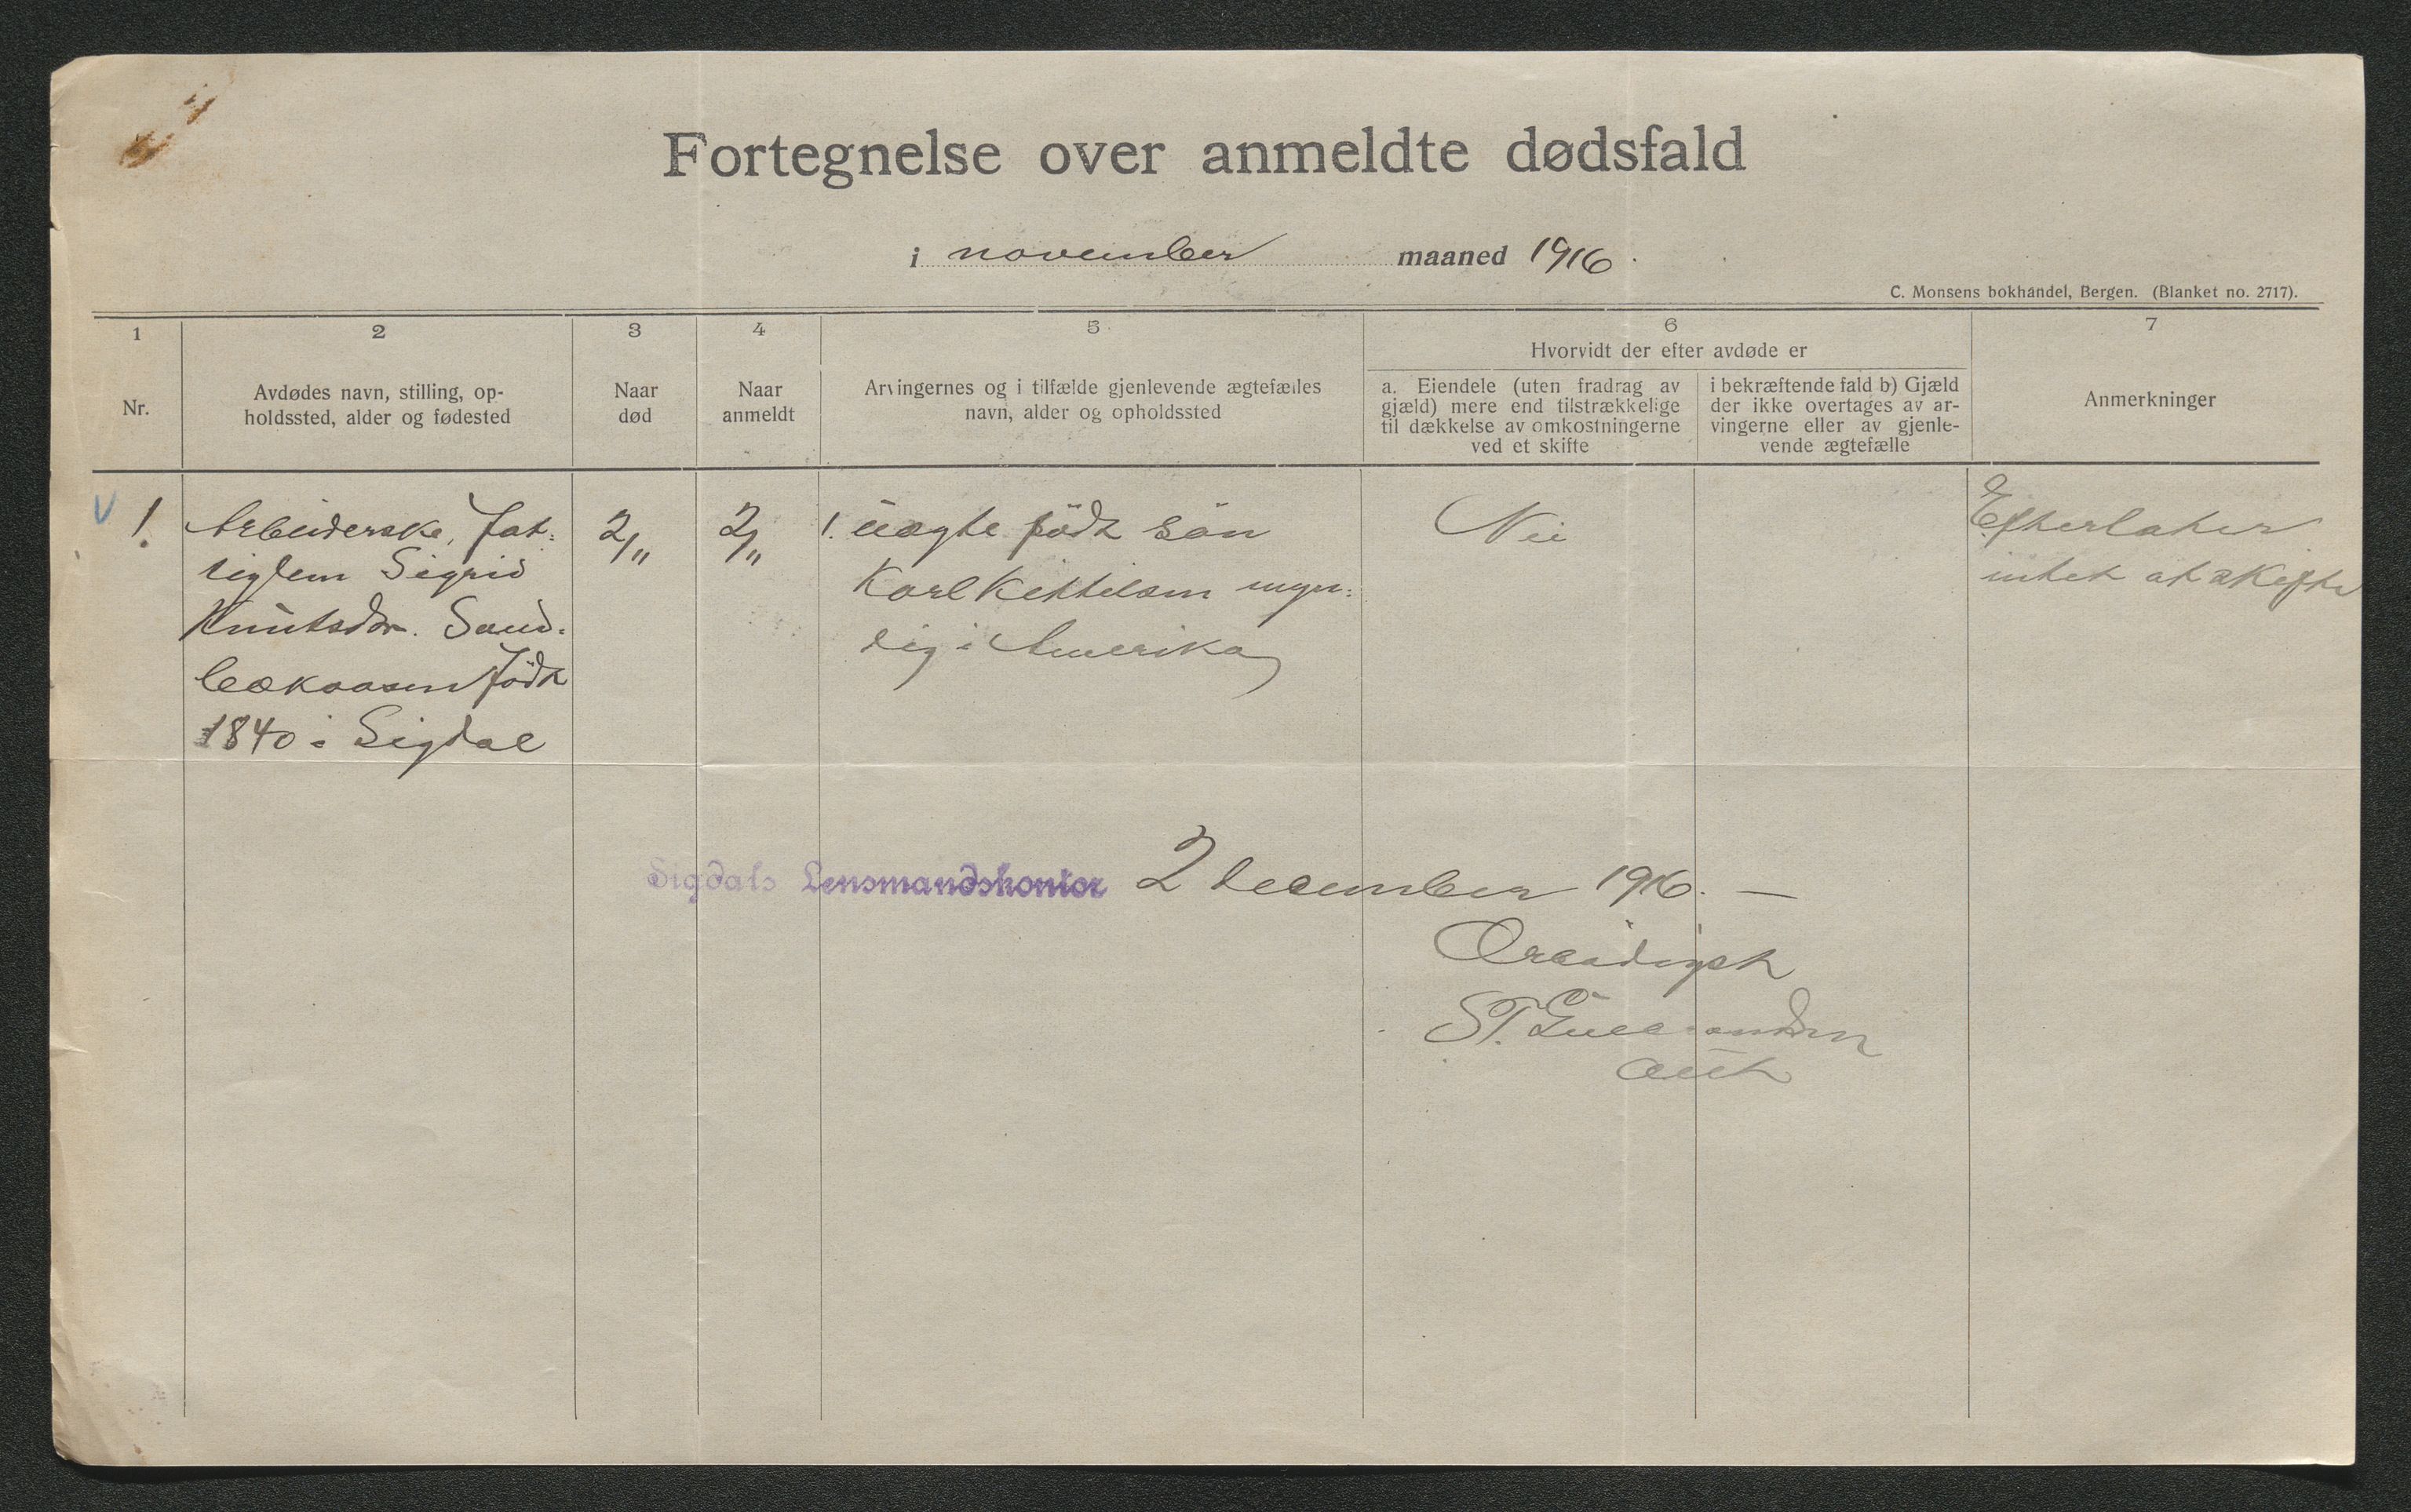 Fortegnelse over anmeldte dødsfald
i november maaned 1916.
C. Monsens bokhandel, Bergen. (Blanket no. 2717).
1
Nr.
2
Avdødes navn, stilling, op-
holdssted, alder og fødested
3
Naar
død
4
Naar
anmeldt
5
Arvingernes og i tilfælde gjenlevende ægtefælles
navn, alder og opholdssted
6
Hvorvidt der efter avdøde er
a. Eiendele (uten fradrag av
gjæld) mere end tilstrækkelige
til dækkelse av omkostningerne
ved et skifte
i bekræftende fald b) Gjæld
der ikke overtages av ar-
vingerne eller av gjenle-
vende ægtefælle
7
Anmerkninger
V 1.
Arbeiderske, fat-
tiglem Sigrid
Knutsdtr. Sand-
bækaasen født
1840 i Sigdal
2/11
2/11
1. uægte født søn
Karl Kittilsen myn-
dig i Amerika
Nei
Efterlater
intet at skifte
Sigdals Lensmandskontor 2 december 1916. —
Ærbødigst
aut